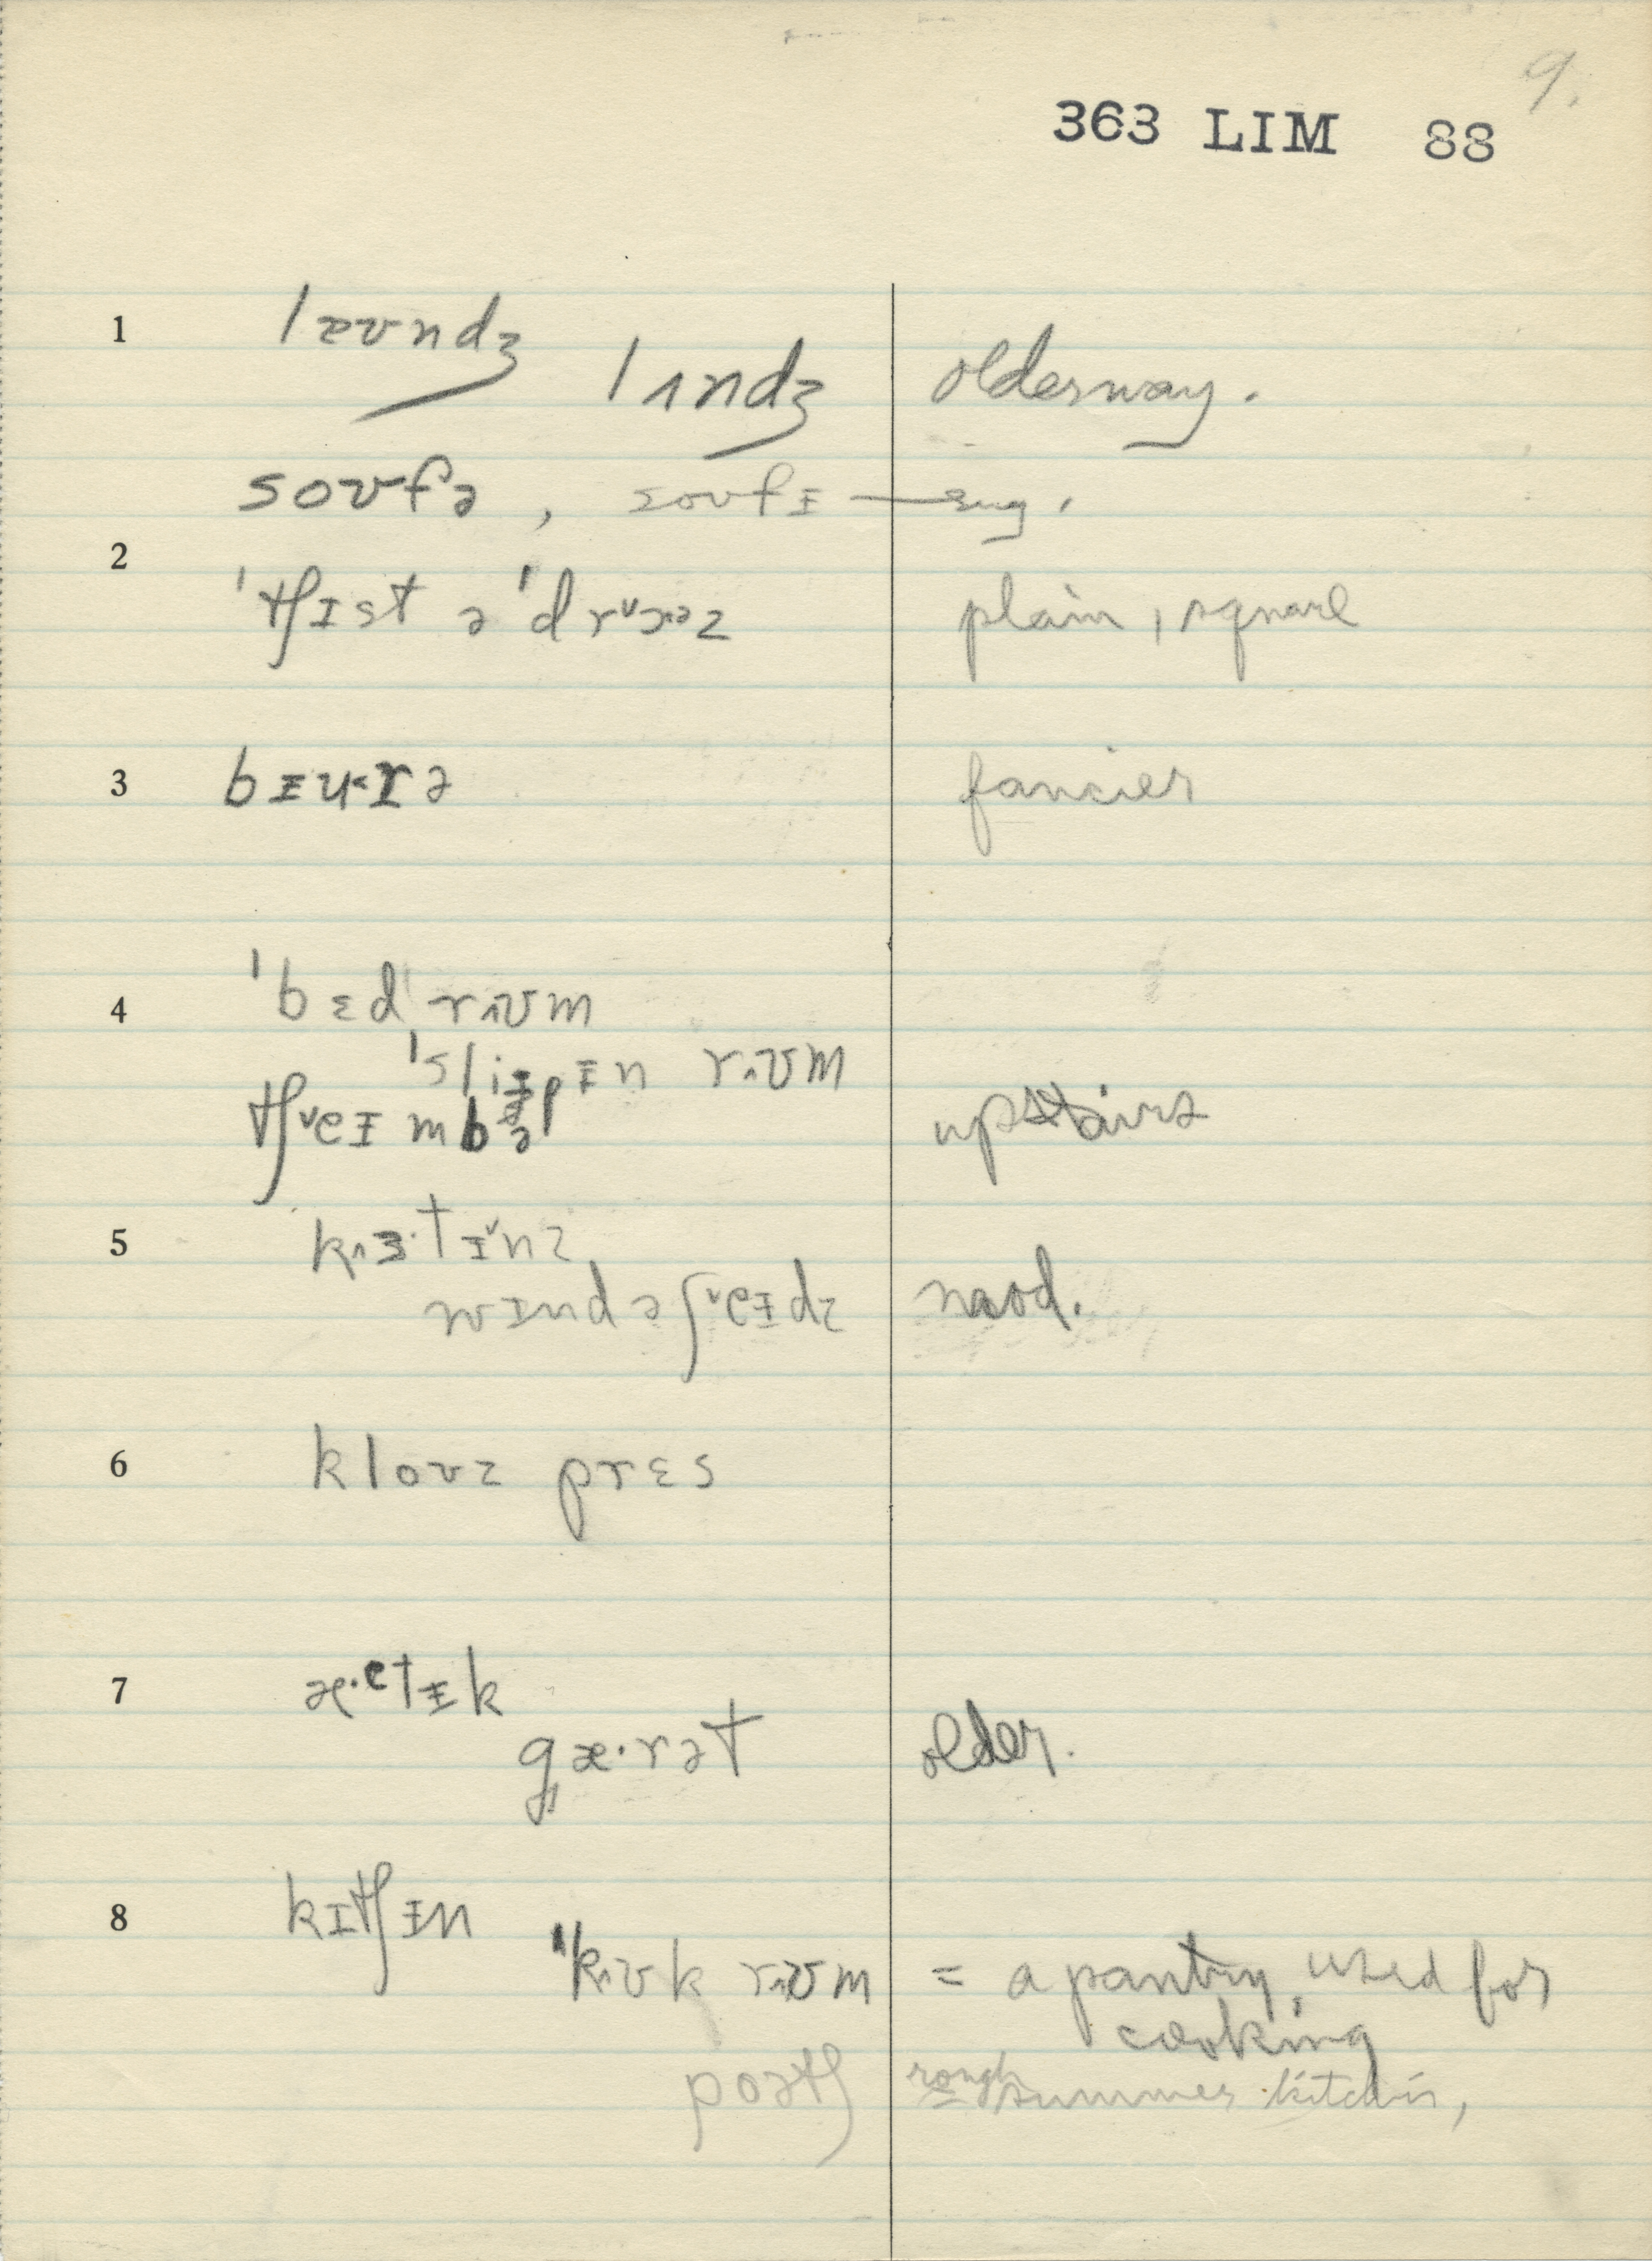 9.
363 LIM 88
1 laʊndʒ
lʌndʒ older way.
soʊfə , soʊfɪ — sug.
2 ˈtʃɪst ə ˈdrɔəz plain, square
3 bɪuˑrə fancier
4 ˈbɛd rʊm
ˈsliɪpɪn rʊm
tʃeɪmbə upstairs
5 kɜˑtɪnz
wɪndəʃeɪdz
6 kloʊz prɛs
7 æˑətɪk
gæˑrət older.
8 kɪtʃɪn
ˈkʊk rʊm = a pantry, used for
cooking
poətʃ rough summer kitchin,